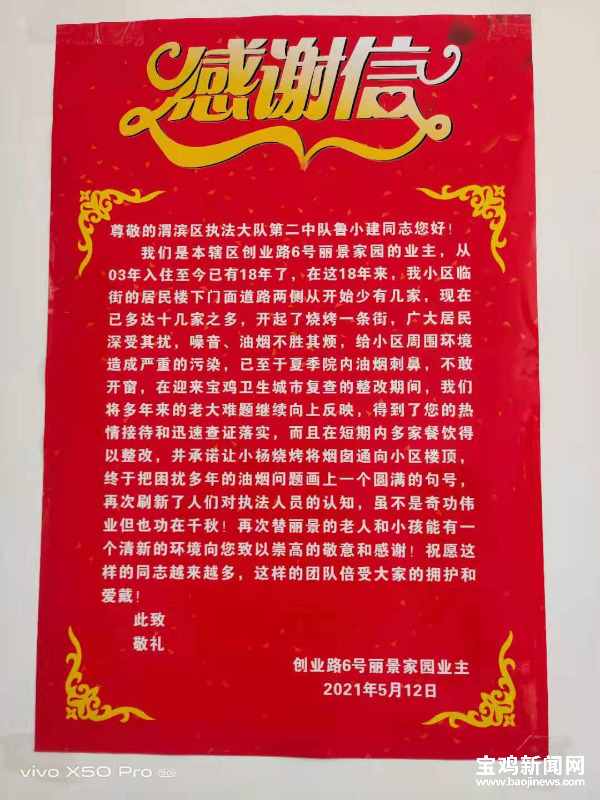 感谢信
尊敬的渭滨区执法大队第二中队鲁小建同志您好！
我们是本辖区创业路6号丽景家园的业主，从
03年入住至今已有18年了，在这18年来，我小区临
街的居民楼下门面道路两侧从开始少有几家，现在
已多达十几家之多，开起了烧烤一条街，广大居民
深受其扰，噪音、油烟不胜其烦，给小区周围环境
造成严重的污染，已至于夏季院内油烟刺鼻，不敢
开窗，在迎来宝鸡卫生城市复查的整改期间，我们
将多年来的老大难题继续向上反映，得到了您的热
情接待和迅速查证落实，而且在短期内多家餐饮得
以整改，并承诺让小杨烧烤将烟囱通向小区楼顶，
终于把困扰多年的油烟问题画上一个圆满的句号，
再次刷新了人们对执法人员的认知，虽不是奇功伟
业但也功在千秋！再次替丽景的老人和小孩能有一
个清新的环境向您致以崇高的敬意和感谢！祝愿这
样的同志越来越多，这样的团队倍受大家的拥护和
爱戴！
此致
敬礼
创业路6号丽景家园业主
2021年5月12日
vivo X50 Pro 5G
宝鸡新闻网
www.baojinews.com